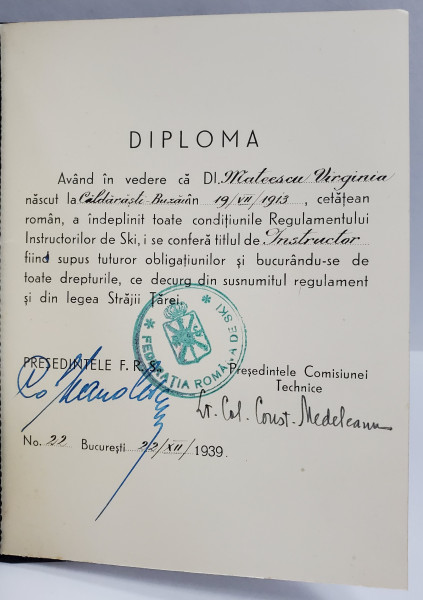 DIPLOMA
Având în vedere că Dl. Mateescu Virginia
născut la Căldărăşti-Buzău în 19/VII/1913, cetăţean
român, a îndeplinit toate condiţiunile Regulamentului
Instructorilor de Ski, i se conferă titlul de Instructor
fiind supus tuturor obligaţiunilor şi bucurându-se de
toate drepturile, ce decurg din susnumitul regulament
şi din legea Străjii Ţărei.
* FEDERAŢIA ROMÂNĂ DE SKI *
PREŞEDINTELE F. R. S.
Preşedintele Comisiunei
Technice
Lt. Col. Const. Medeleanu
No. 22 Bucureşti 22/XII/1939.